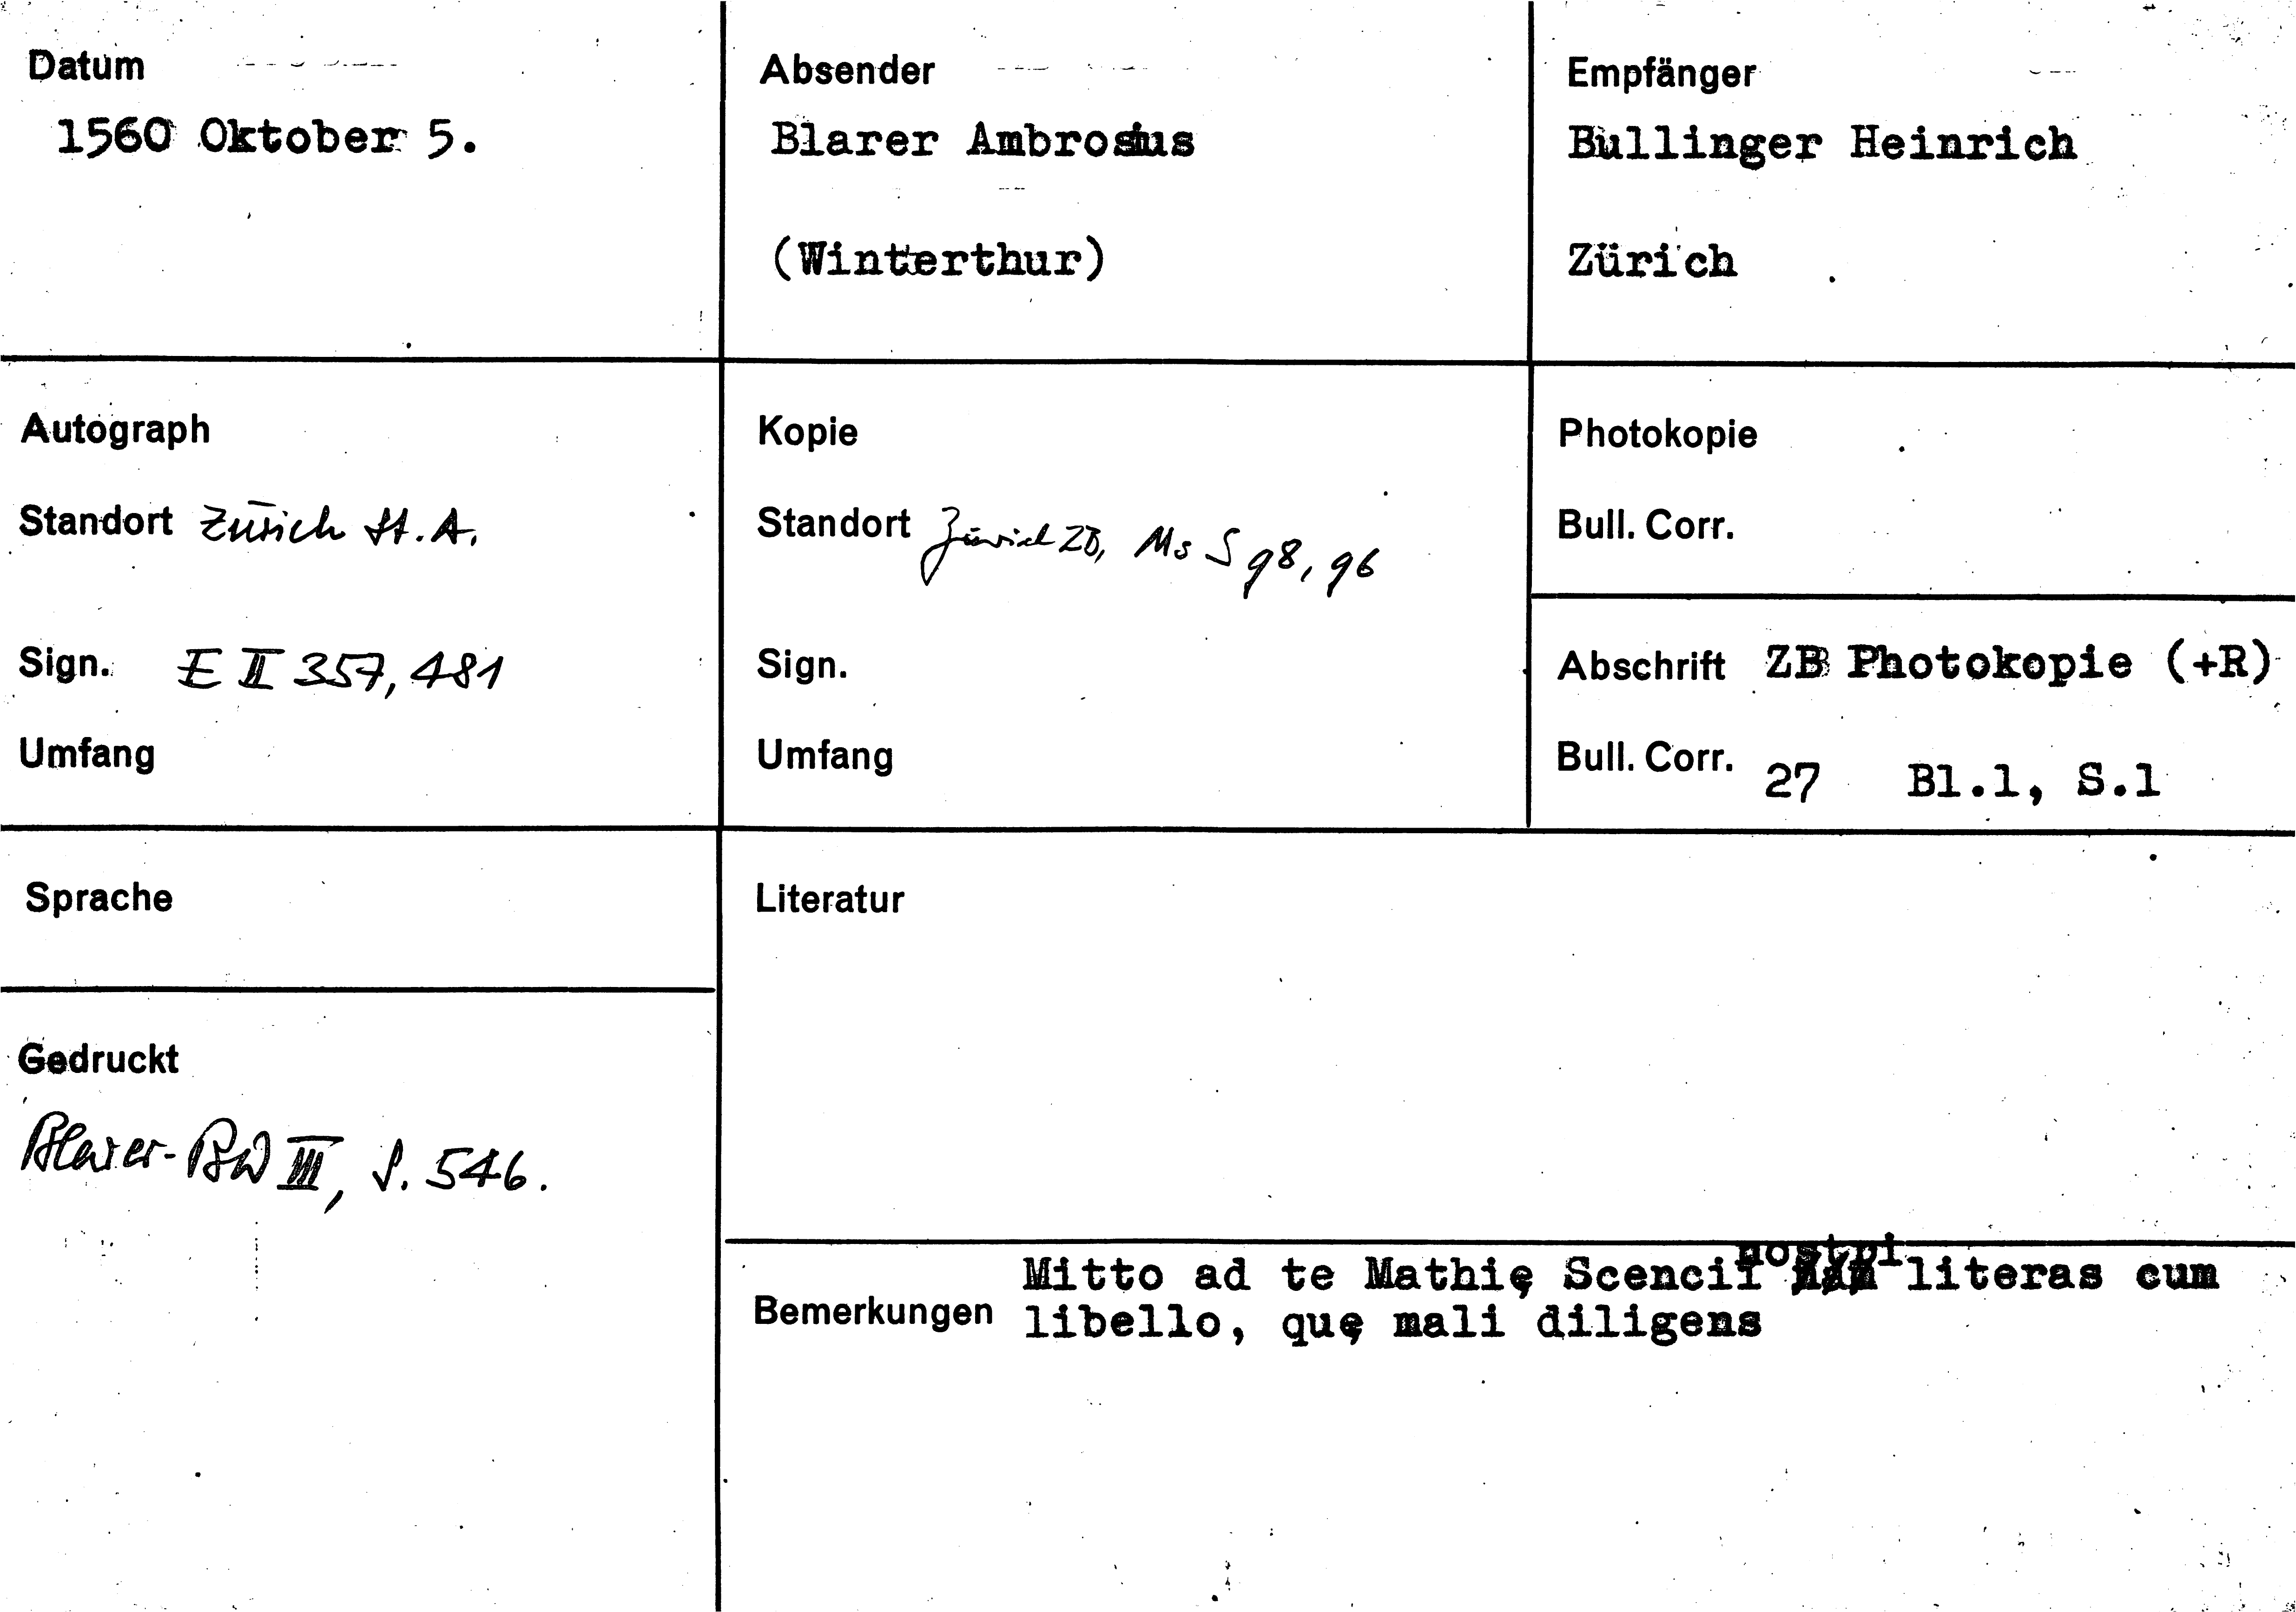 Datum
1560 Oktober 5.
Absender
Blarer Ambrosius
(Winterthur)
Empfänger
Bullinger Heinrich
Zürich
Autograph
Standort Zürich St.A.
Sign. E II 357, 481
Umfang
Kopie
Standort Zürich ZB, Ms S 98, 96
Sign.
Umfang
Photokopie
Bull. Corr.
Abschrift ZB Photokopie (+R)
Bull. Corr. 27 Bl.1, S.1
Sprache
Gedruckt
Blarer-BW III, S. 546.
Literatur
Bemerkungen
Mitto ad te Mathię Scencii nostri literas cum
libello, quę mali diligens